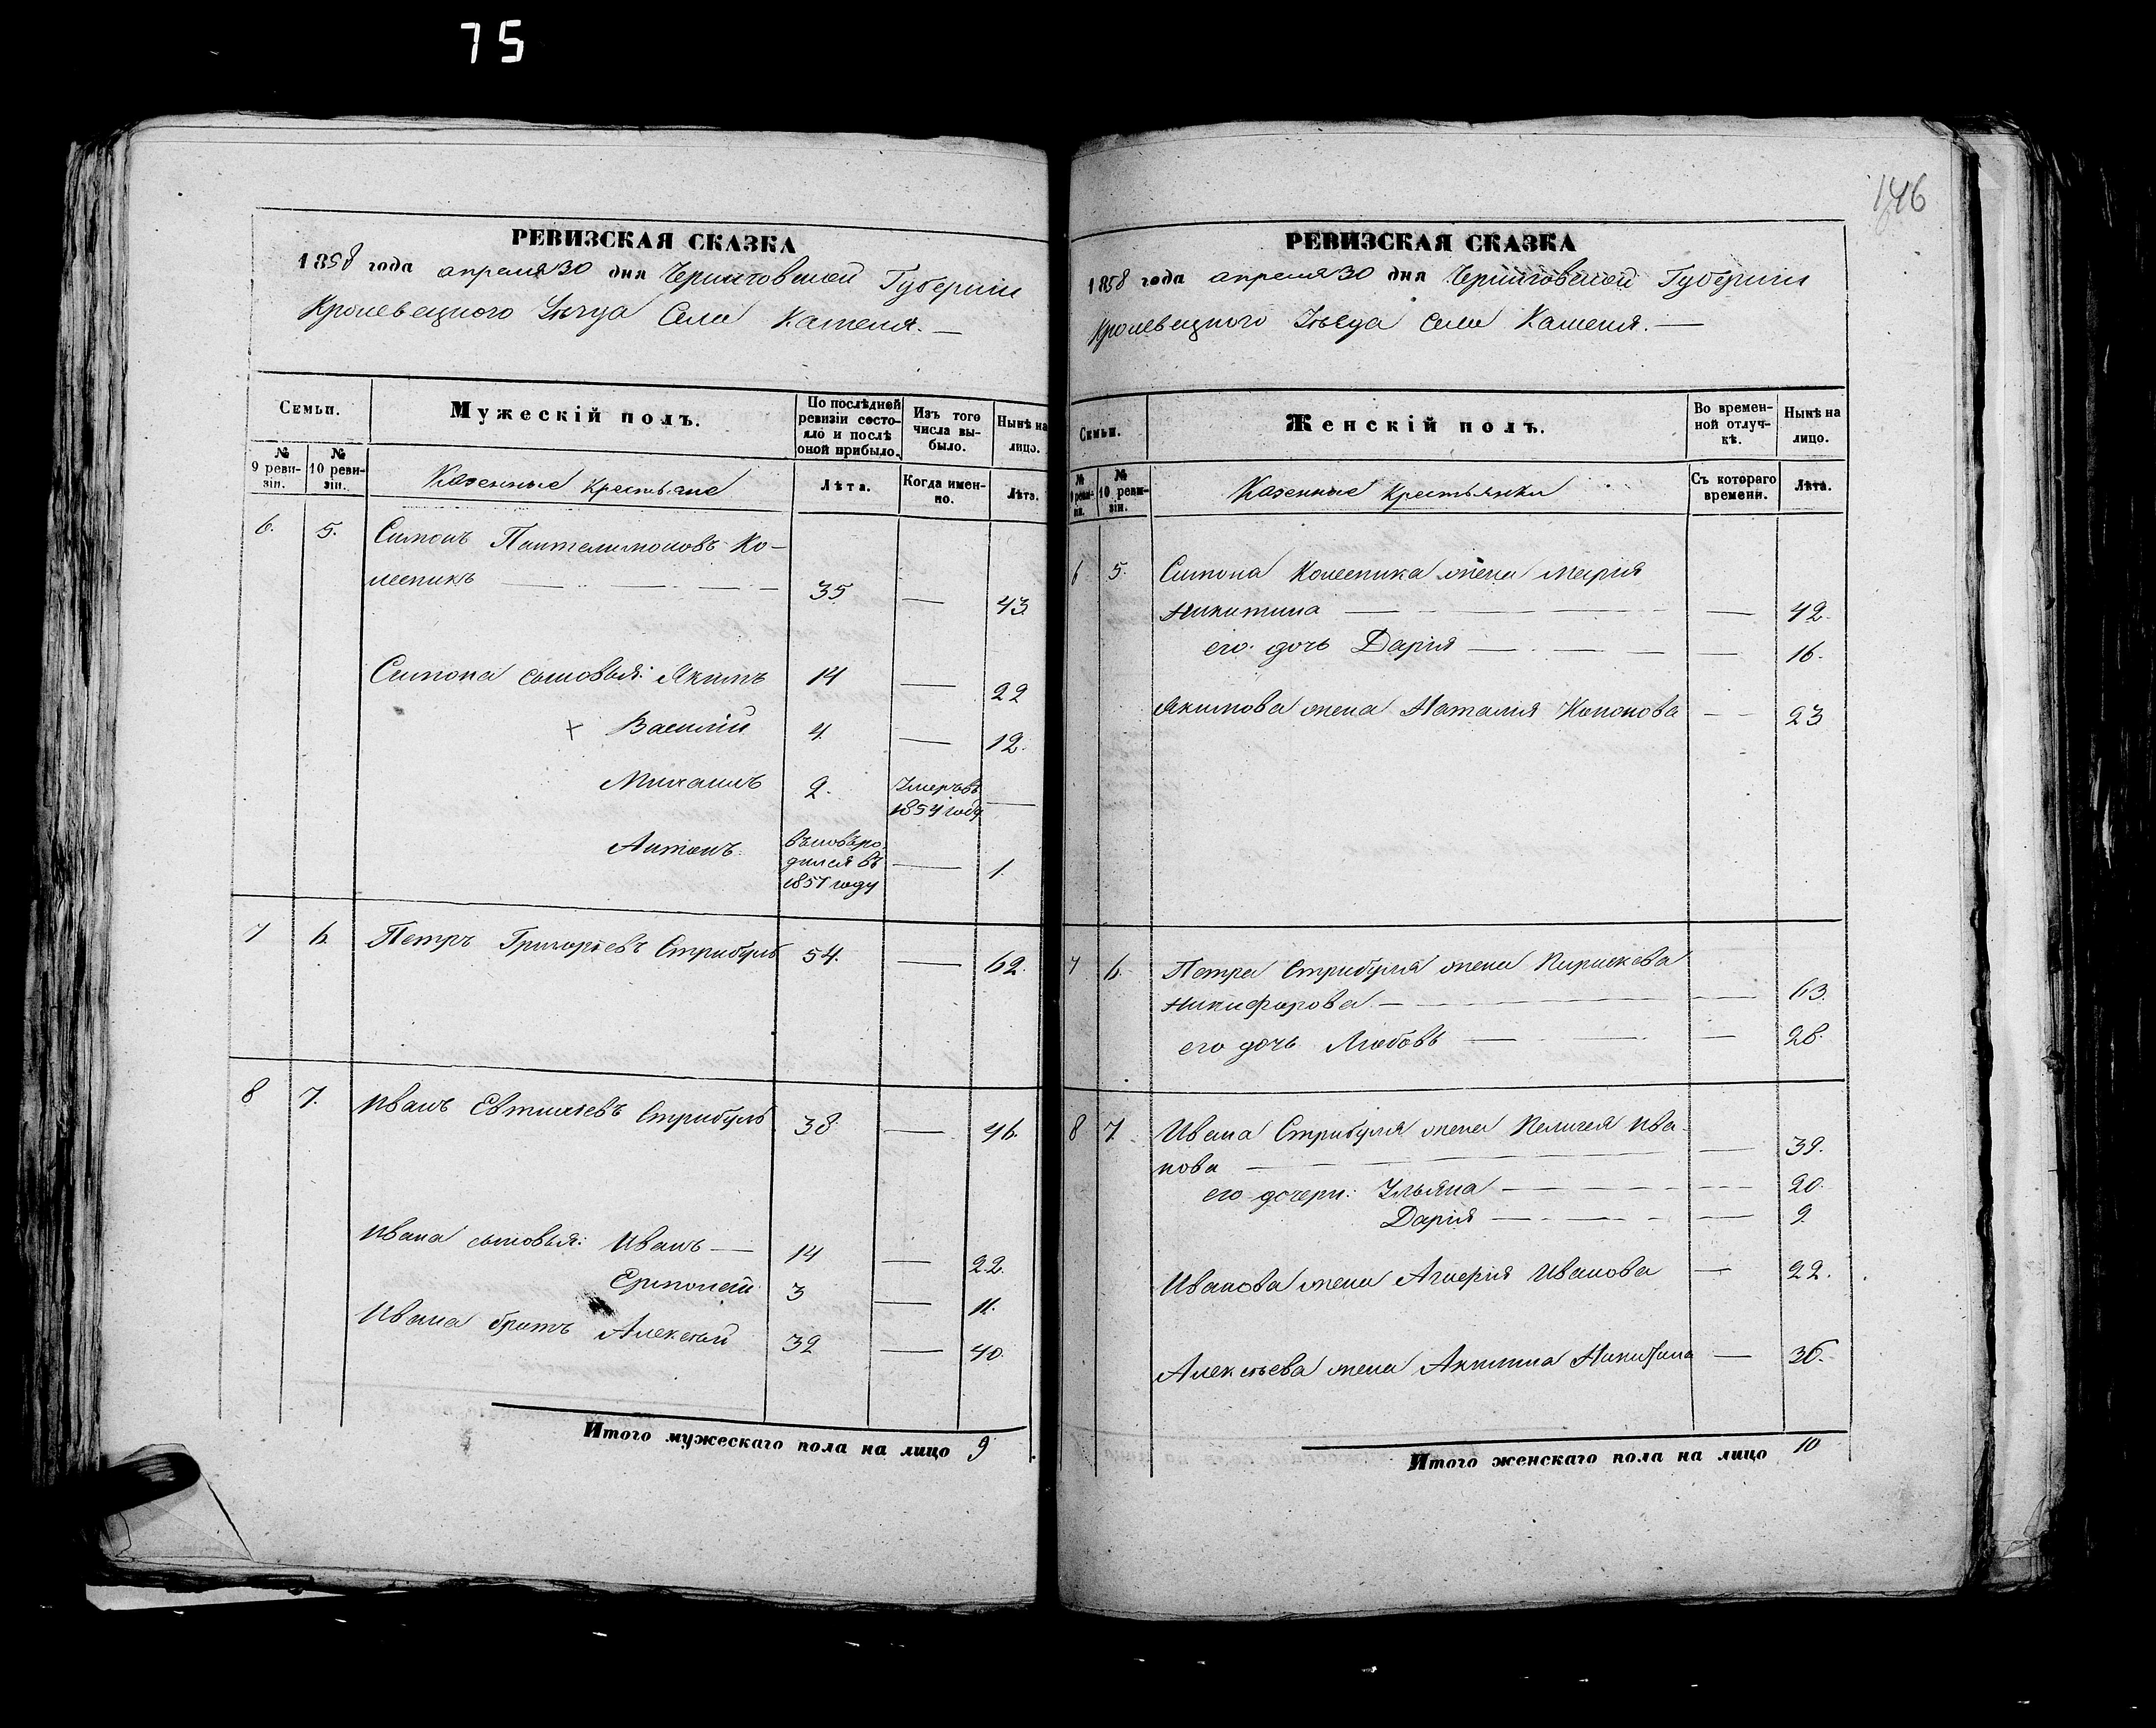 75
146
РЕВИЗСКАЯ СКАЗКА
1858 года апреля 30 дня Черниговской Губернии
Кролевецкого Уезда Села Каменя. —
Семьи.
Мужескій полъ.
По послѣдней ревизіи состояло и послѣ оной прибыло.
Изъ того числа выбыло.
Нынѣ на лицо.
№ 9 ревизіи.
№ 10 ревизіи.
Казенные крестьяне
Лѣта.
Когда именно.
Лѣта.
6. 5. Симонъ Пантелимоновъ Ко-
лесникъ — 35 — 43
Симона сыновья: Якимъ 14 — 22
× Василій 4 — 12.
Михаилъ 2. Умеръ въ 1854 году —
Антонъ. вновь родился въ 1857 году — 1.
7 6. Петръ Григорьевъ Стрибуль 54. — 62.
8 7. Иванъ Евтихіевъ Стрибуль 38. — 46.
Ивана сыновья: Иванъ — 14 — 22.
Ермолай 3 — 11.
Ивана братъ Алексѣй 32 — 40.
Итого мужескаго пола на лицо 9
РЕВИЗСКАЯ СКАЗКА
1858 года апреля 30 дня Черниговской Губернии
Кролевецкого Уѣзда села Каменя. —
Семьи.
Женскій полъ.
Во временной отлучкѣ.
Нынѣ на лицо.
№ 9 ревизіи.
№ 10 ревизіи.
Казенные крестьянки
Съ котораго времени.
Лѣта.
6 5. Симона Колесника жена Марія
Никитина — — 42.
его дочь Дарія — — 16.
Якимова жена Наталия Кононова — 23
7 6. Петра Стрибуля жена Параскева
Никифорова — — 63.
его дочь Любовь — — 28.
8 7. Ивана Стрибуля жена Пелагея Ива-
нова — — 39.
его дочери: Ульяна — — 20.
Дарія — — 9.
Иванова жена Агафія Иванова — 22.
Алексѣева жена Акилина Никитина — 36.
Итого женскаго пола на лицо 10